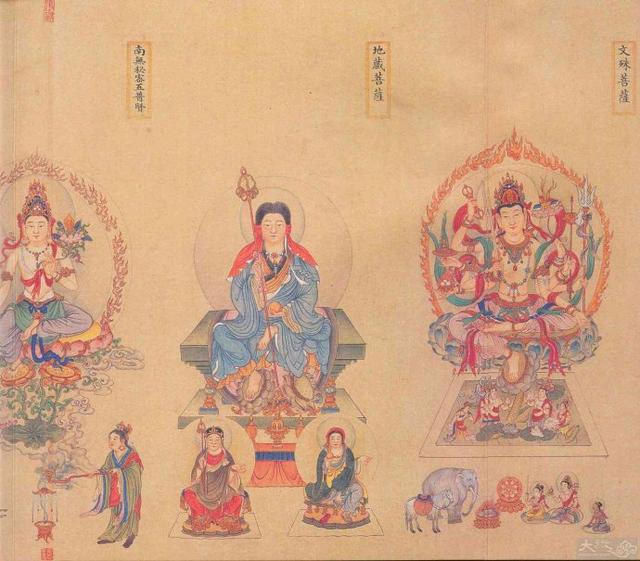 文殊菩薩
地藏菩薩
南無秘密五普賢